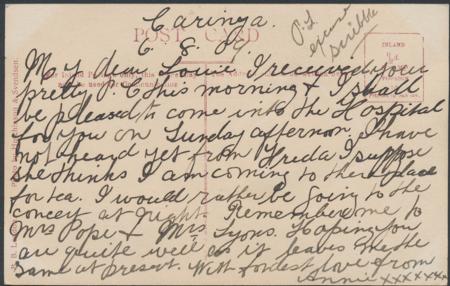 Caringa.
6. 8. 09.
P.S
excuse
scribble
POST CARD
INLAND
My dear Louie I received your
pretty P.C this morning & I shall
be pleased to come into the Hospital
for you on Sunday afternoon, I have
not heard yet from Freda I suppose
she thinks I am coming to there place
for tea. I would rather be going to the
concert at night. Remember me to
Mrs Pope & Mrs Lyons. Hoping you
are quite well as it leaves me the
same at present. With fondest love from
Annie xxxxxxx